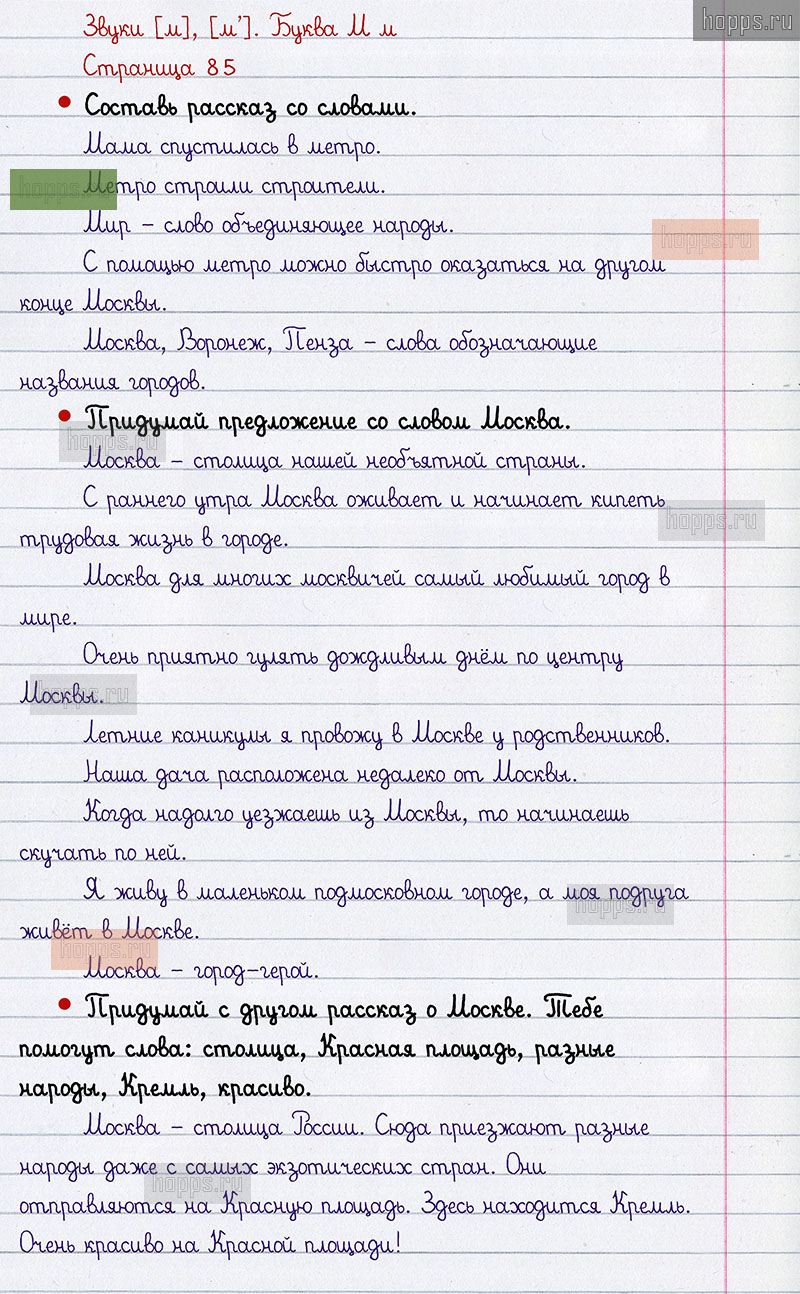 hopps.ru
Звуки [м], [м']. Буква М м
Страница 85
• Составь рассказ со словами.
Мама спустилась в метро.
Метро строили строители.
Мир – слово объединяющее народы.
С помощью метро можно быстро оказаться на другом
конце Москвы.
Москва, Воронеж, Пенза – слова обозначающие
названия городов.
• Придумай предложение со словом Москва.
Москва – столица нашей необъятной страны.
С раннего утра Москва оживает и начинает кипеть
трудовая жизнь в городе.
Москва для многих москвичей самый любимый город в
мире.
Очень приятно гулять дождливым днём по центру
Москвы.
Летние каникулы я провожу в Москве у родственников.
Наша дача расположена недалеко от Москвы.
Когда надолго уезжаешь из Москвы, то начинаешь
скучать по ней.
Я живу в маленьком подмосковном городе, а моя подруга
живёт в Москве.
Москва – город-герой.
• Придумай с другом рассказ о Москве. Тебе
помогут слова: столица, Красная площадь, разные
народы, Кремль, красиво.
Москва – столица России. Сюда приезжают разные
народы даже с самых экзотических стран. Они
отправляются на Красную площадь. Здесь находится Кремль.
Очень красиво на Красной площади!